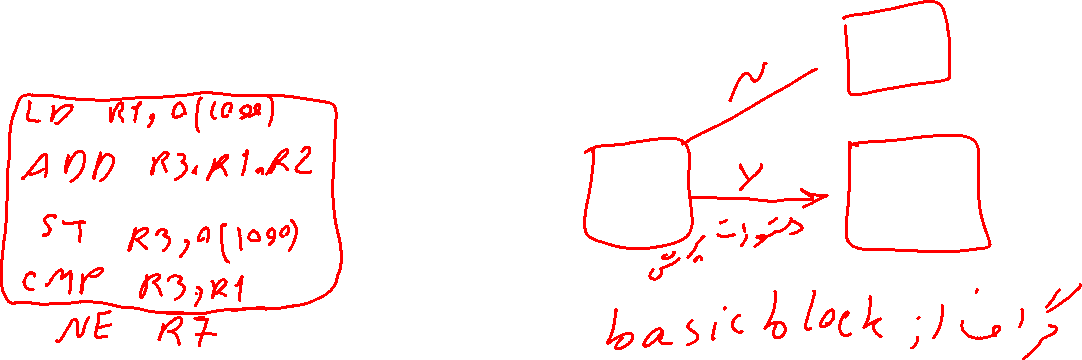 LD R1, 0(1000)
ADD R3, R1, R2
ST R3, 0(1000)
CMP R3, R1
NE R7
N
Y
دستورات پرش
گرافی از basic block